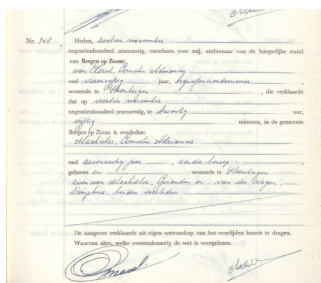 Nr. 348 Heden, zestien november
negentienhonderd zesenzestig, verscheen voor mij, ambtenaar van de burgerlijke stand
van Bergen op Zoom:
van Hersel, Cornelis Adrianus
oud jaar, begrafenisondernemer,
wonende te Steenbergen, die verklaarde
dat op veertien november
negentienhonderd zesenzestig, te twintig uur,
vijftig minuten, in de gemeente
Bergen op Zoom is overleden:
Machielse, Cornelis Adrianus
oud zesenzestig jaar, zonder beroep,
geboren en wonende te Steenbergen
zoon van Machielse, Gerardus en van der
Dimphna, beiden overleden.
De aangever verklaarde uit eigen wetenschap van het overlijden kennis te dragen.
Waarvan akte, welke overeenkomstig de wet is voorgelezen.